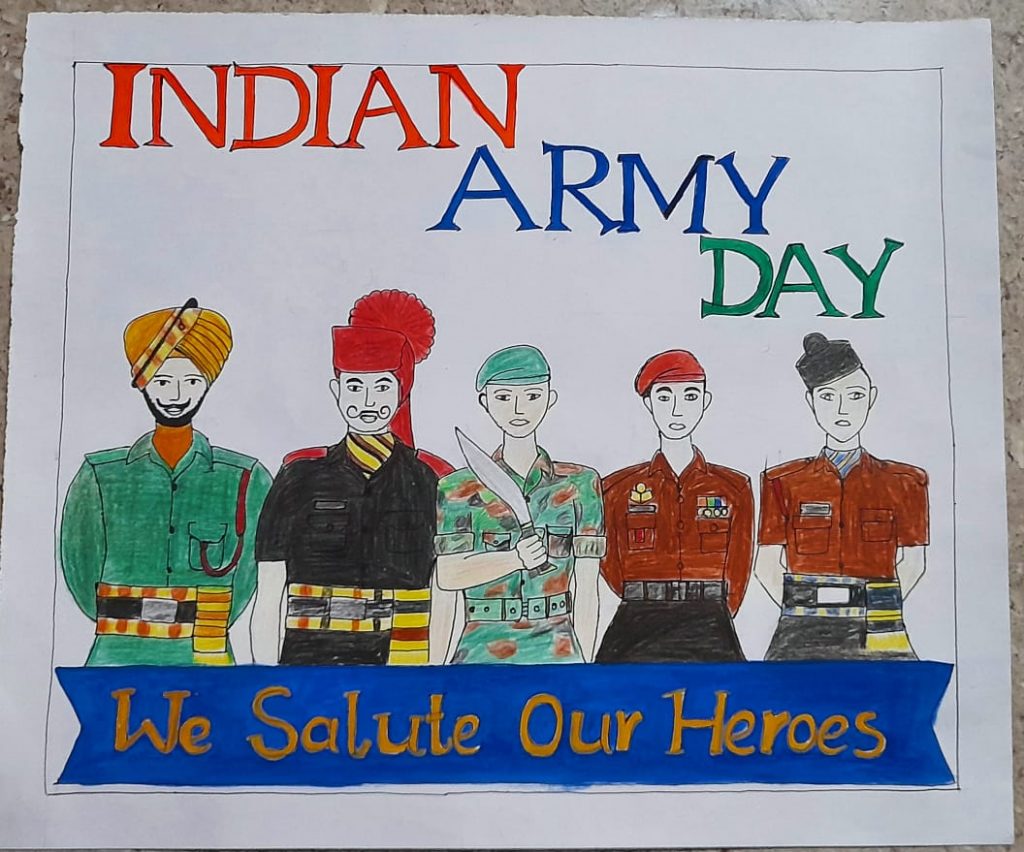 INDIAN
ARMY
DAY
We Salute Our Heroes